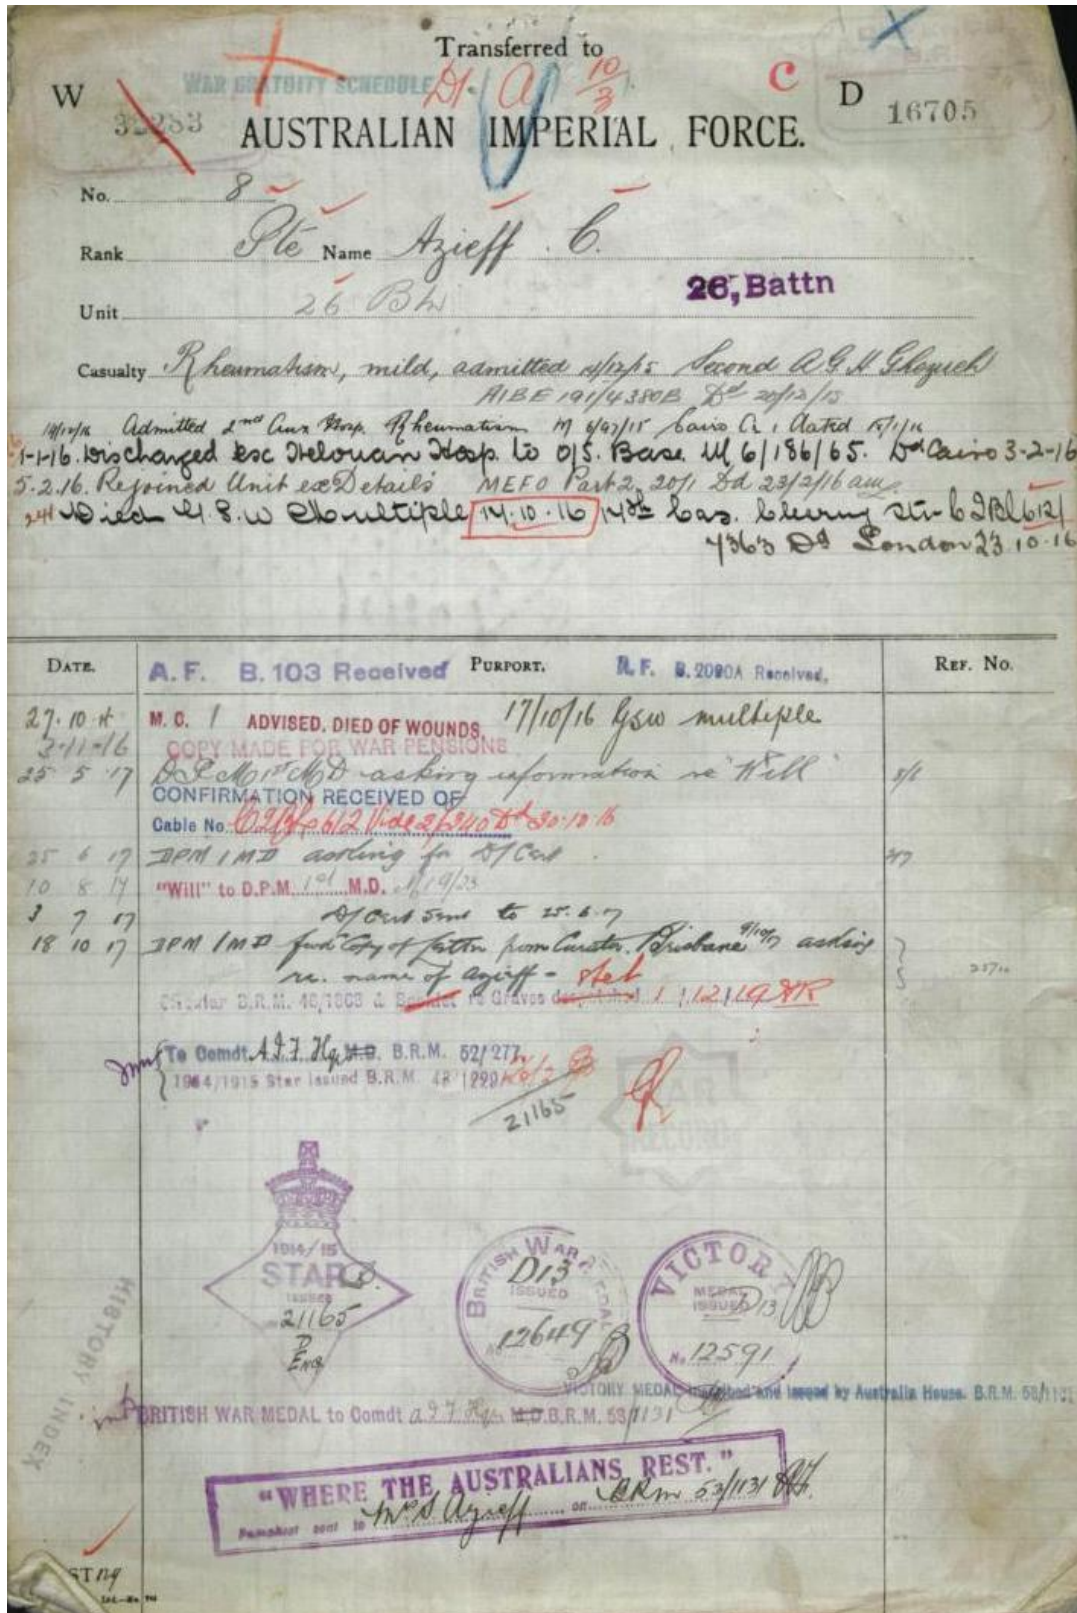 Transferred to
WAR GRATUITY SCHEDULE
10/3
C
W
D
16705
AUSTRALIAN IMPERIAL FORCE.
No. 8
Rank Pte Name Azieff. C.
Unit 26 Bn
26, Battn
Casualty Rheumatism, mild, admitted 4/12/15 Second A G H Ghezireh
AIBE 191/4380B Dd 20/12/15
Admitted 2nd Aux Hosp. Rheumatism M 6/97/15 Cairo dated 15/1/16
1-1-16. Discharged exc Helouan Hosp. to O/S. Base. M 6/186/65. Dd Cairo 3-2-16
5.2.16. Rejoined Unit ex Details MEFO Part 2, 20/1 Dd 23/2/16
Died G.S.W Multiple 14.10.16 Cas. Clearing Stn
Dd London 23.10.16
DATE.
PURPORT.
REF. NO.
A.F. B.103 Received
B.2090A Received.
27.10.
M. C. 1 ADVISED, DIED OF WOUNDS, 17/10/16 GSW multiple
3-11-16
COPY MADE FOR WAR PENSIONS
25 5 17 DPM 1st MD asking information re "Will"
CONFIRMATION RECEIVED OF
Cable No. 612 Vide 2/240 Dd 30.10.16
25 6 17 DPM 1 MD asking for D/Cert
10 8 17 "Will" to D.P.M. 1st M.D.
3 7 17 D/Cert sent to 25.6.17
18 10 17 DPM 1 MD fwd Copy of letter from Curator, Brisbane 9/10/17 asking
re. name of Azieff - stet
Circular B.R.M. & Booklet re Graves despatched 1/12/19
To Comdt. A.I.F. Hqrs M.D. B.R.M. 52/277
1914/1915 Star Issued B.R.M. 48/1220
21165
WAR
RECORD
1914/15
STAR
ISSUED
21165
BRITISH WAR MEDAL
D13
ISSUED
No. 12649
VICTORY
MEDAL
ISSUED D13
No. 12591
VICTORY MEDAL inscribed and issued by Australia House. B.R.M.
BRITISH WAR MEDAL to Comdt A.I.F. Hqrs M.D. B.R.M. 53/1131
HISTORY INDEX
"WHERE THE AUSTRALIANS REST."
Pamphlet sent to Mrs S. Azieff on BRM 53/1131